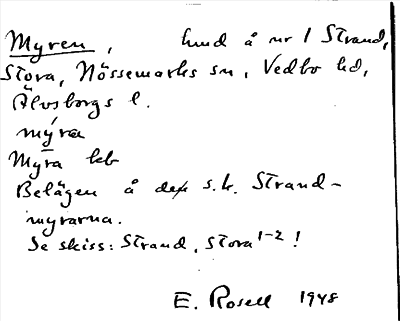 Myren, hmd å nr 1 Strand,
Stora, Nössemarks sn, Vedbo hd,
Älvsborgs l.
mýra
Myra leb
Belägen å den s.k. Strand-
myrarna.
Se skiss: Strand, Stora 1-2!
E. Rosell 1948